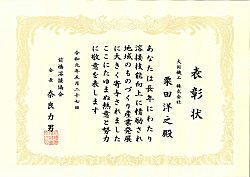 表彰状
大和鐵工 株式会社
栗田洋之殿
あなたは長年にわたり
溶接技能向上に精励され
地域のものづくり産業発展
に大きく寄与されました
ここにたゆまぬ熱意と努力
に敬意を表します
令和元年五月二十七日
前橋溶接協会
会長 奈良力男